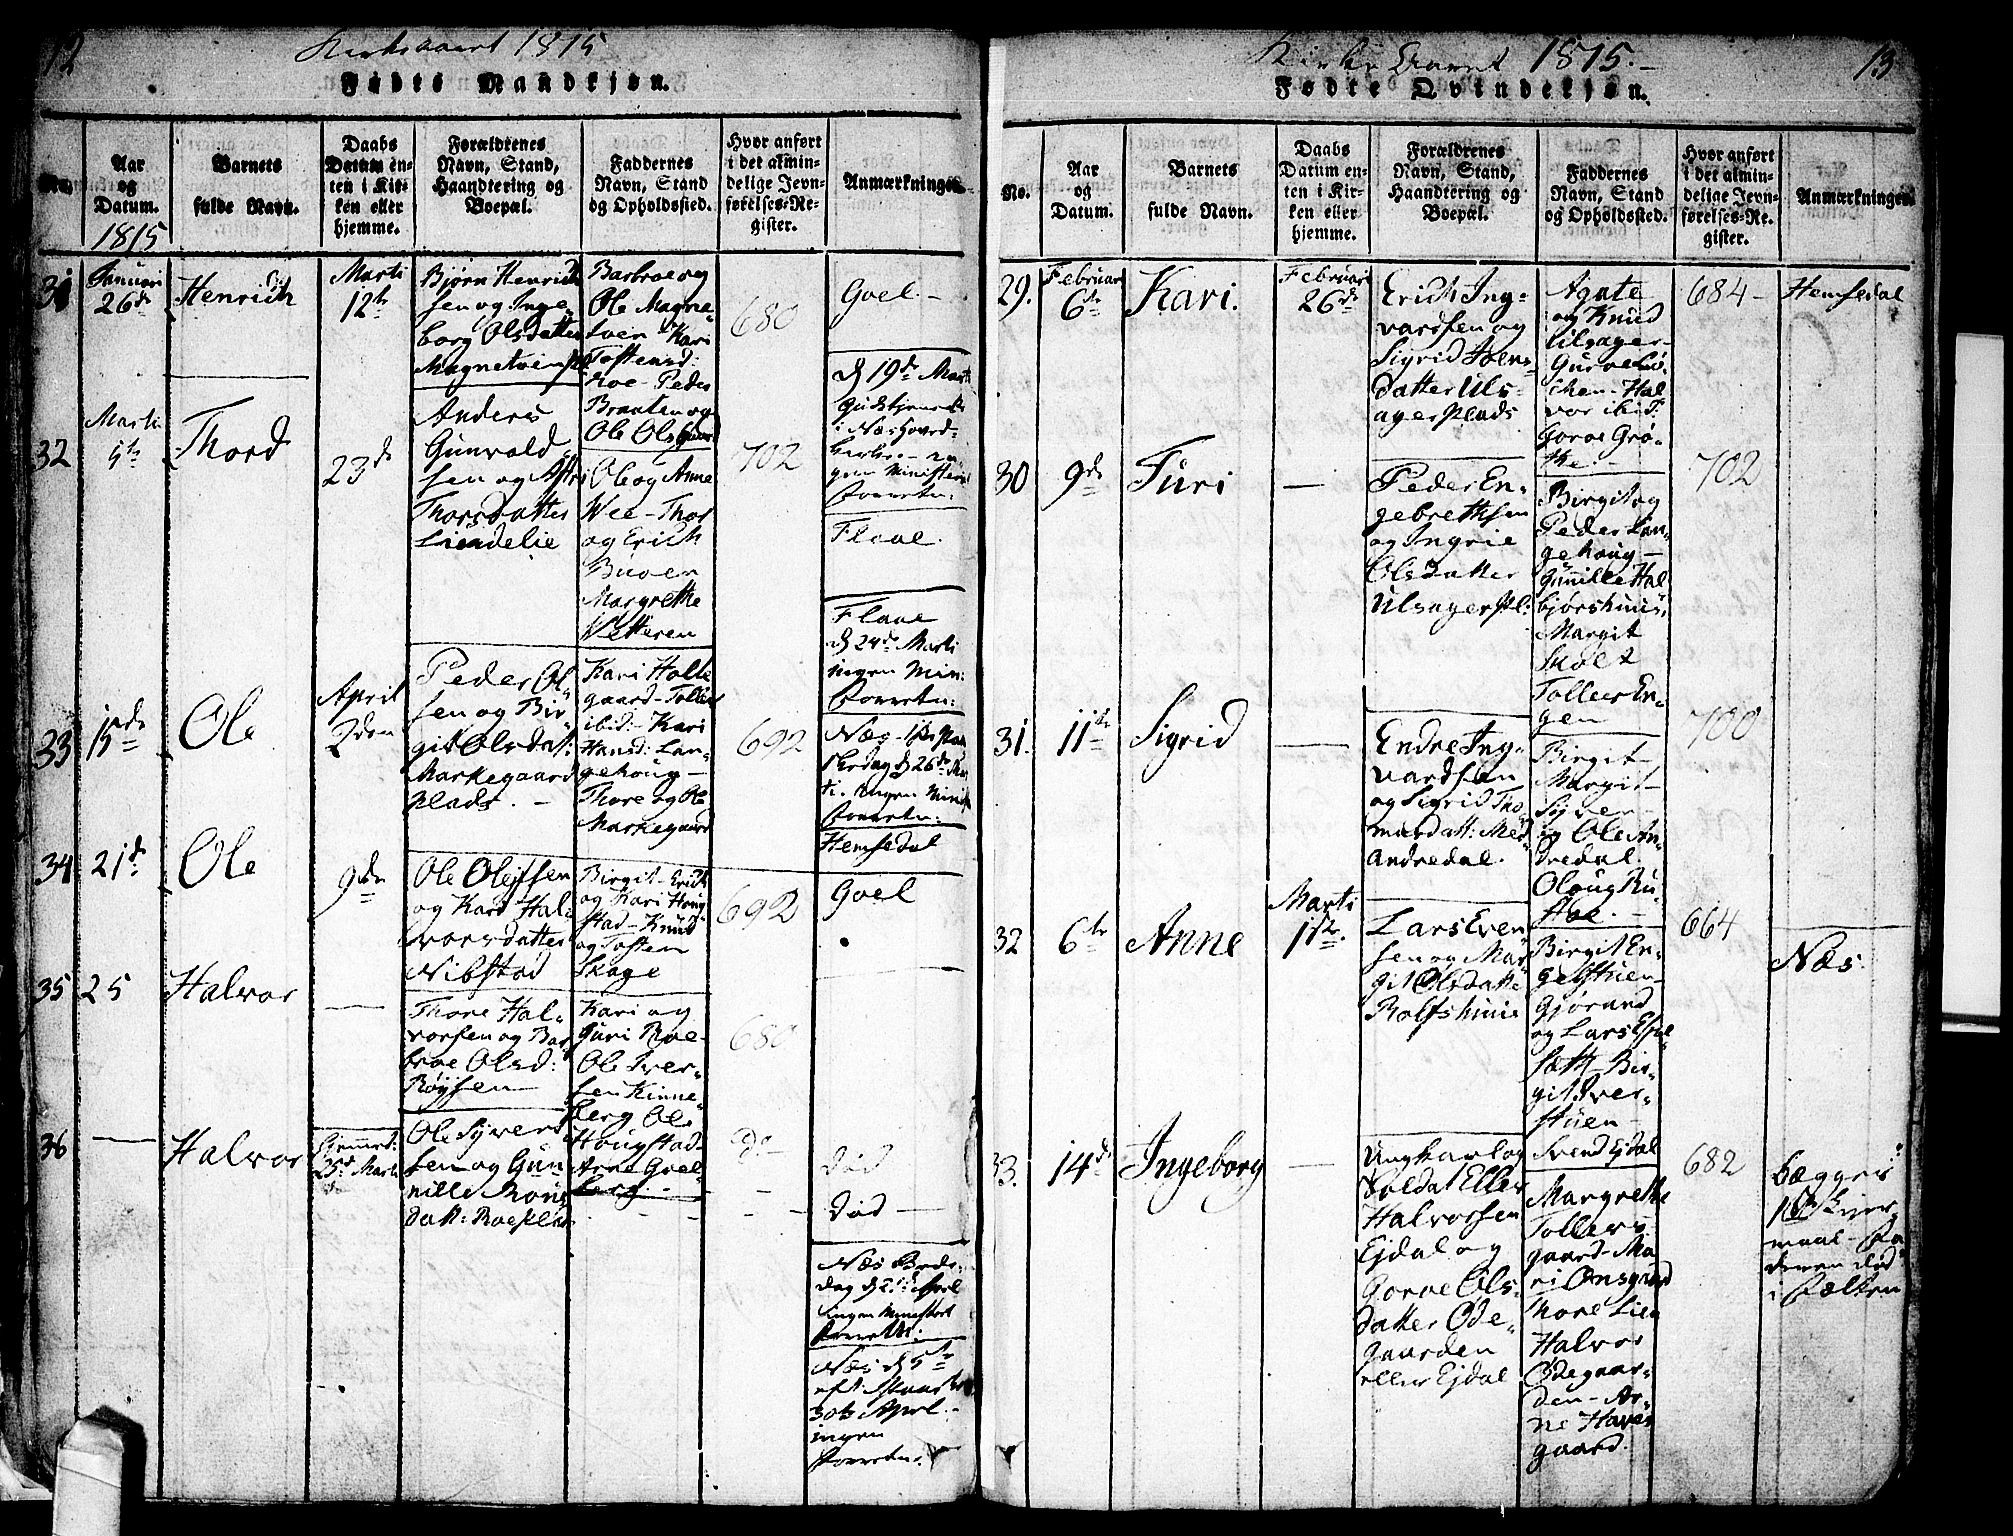 12
Kirkeaaret 1815
Fødte Mandkjøn.
No.
Aar
og
Datum.
1815
Barnets
fulde Navn.
Daabs
Datum en-
ten i Kir-
ken eller
hjemme.
Forældrenes
Navn, Stand,
Haandtering og
Boepæl.
Faddernes
Navn, Stand
og Opholdssted.
Hvor anført
i det almin-
delige Jevn-
førelses-Re-
gister.
Anmærkninger.
31
Januari
26de
Henrich
Marti
12te
Bjørn Henrich
sen og Inge-
borg Olsdatter
Magnetvens pl
Barbroe og
Ole Magne-
tven Kari
Tostensd:
Roe - Peder
Braaten og
Ole Olsgaard
680
Goel. -
d 19de Marti
Gudstjeneste
i Næs Hoved-
kerke - in-
gen Ministerial
Forretn:
32
Marti
5te
Thord
23de
Anders
Gunvald-
sen og Astri
Thorsdatter
Liendelie
Ole og Anne
Wee - Thor
og Erich
Buoen
Margrethe
Vetteren
702
Flaae.
Flaae
d 24de Marti
ingen Min:
Forretn:
33
15de
Ole
April
2den
Peder Ol-
sen og Bir-
git Olsdatt:
Markegaard
plads. -
Kari Holte
gaard - Toller
ibid - Kari
Hansd: Lan-
gehoug -
Thore og Ole
Markegaard
692
Næs - 1ste Paa
skedag d 26de Mar
ti. ingen Minist
Forretn:
Hemsedal
34
21de
Ole
9de
Ole Olessen
og Kari Hal-
vorsdatter
Nibstad
Birgit - Erich
og Kari Houg
stad - Knud
og Tosten
Skage
692
Goel
35
25
Halvor
Thore Hal-
vorsen og Bar
broe Olsd:
Røysen
Kari og
Guri Roe -
Ole Iver-
sen Kinne-
berg Ole
Hougstad -
Arne Goel-
berg. -
680
36
Halvor
Hjemmed:
25de Marti
Ole Syvers
sen og Gun-
nille
datt: Roeplads
do -
død
død
d 2den April
ingen Minist
Forretn:
Næs d 5te
eft: Paaske
30te April -
ingen
Forretn:
Kirke Aaret 1815. -
13
Fødte Qvindekjøn.
No.
Aar
og
Datum.
Barnets
fulde Navn.
Daabs
Datum en-
ten i Kir-
ken eller
hjemme.
Forældrenes
Navn, Stand,
Haandtering og
Boepæl.
Faddernes
Navn, Stand
og Opholdssted.
Hvor anført
i det almin-
delige Jevn-
førelses-Re-
gister.
Anmærkninger.
29.
Februar
6te
Kari.
Februar
26de
Erich Ing-
vardsen og
Sigrid Joens
datter Uls-
ager plads
Agate
og Knud
Ulsager -
Gurve
Hal-
vor ibid:
Goroe Grø-
the. -
684 -
Hemsedal
30
9de
Turi
Peder En-
gebrethsen
og Ingrie
Olsdatter
Ulsager pl:
Birgit og
Peder Lan-
gehoug -
Gunnille Hal-
bjørshuus -
Margit
Skolt
Toller En-
gen
702
31.
11te
Sigrid
Endre Ing-
vardsen
og Sigrid Tho
masdatt: Med
Andredal.
Birgit -
Margit -
Syver -
og Ole An-
dredal.
Oloug Ru-
stae. -
700
32
6te
Anne
Marti
1ste.
Lars Even
sen og Mar
git Olsdatt:
Rolfshuus
Birgit En-
gelstuen -
Gjørand
og Lars Espe
sætt - Bir-
git Iver-
stuen -
Svend Ejdal
664
Næs.
33.
14de
Ingeborg
Ungkarl og
Soldat Eller
Halvorsen
Ejdal og
Goroe Ols-
datter Øde-
gaarden
eller Ejdal
Margrethe
Tollers-
gaard - Ma
ri Onsgaard
Thore Lien
Halvor
Ødegaar-
den - Ar-
ne Haver
gaard.
682
bægges
1ste Leyer-
maal - Fa
deren død
i Felten